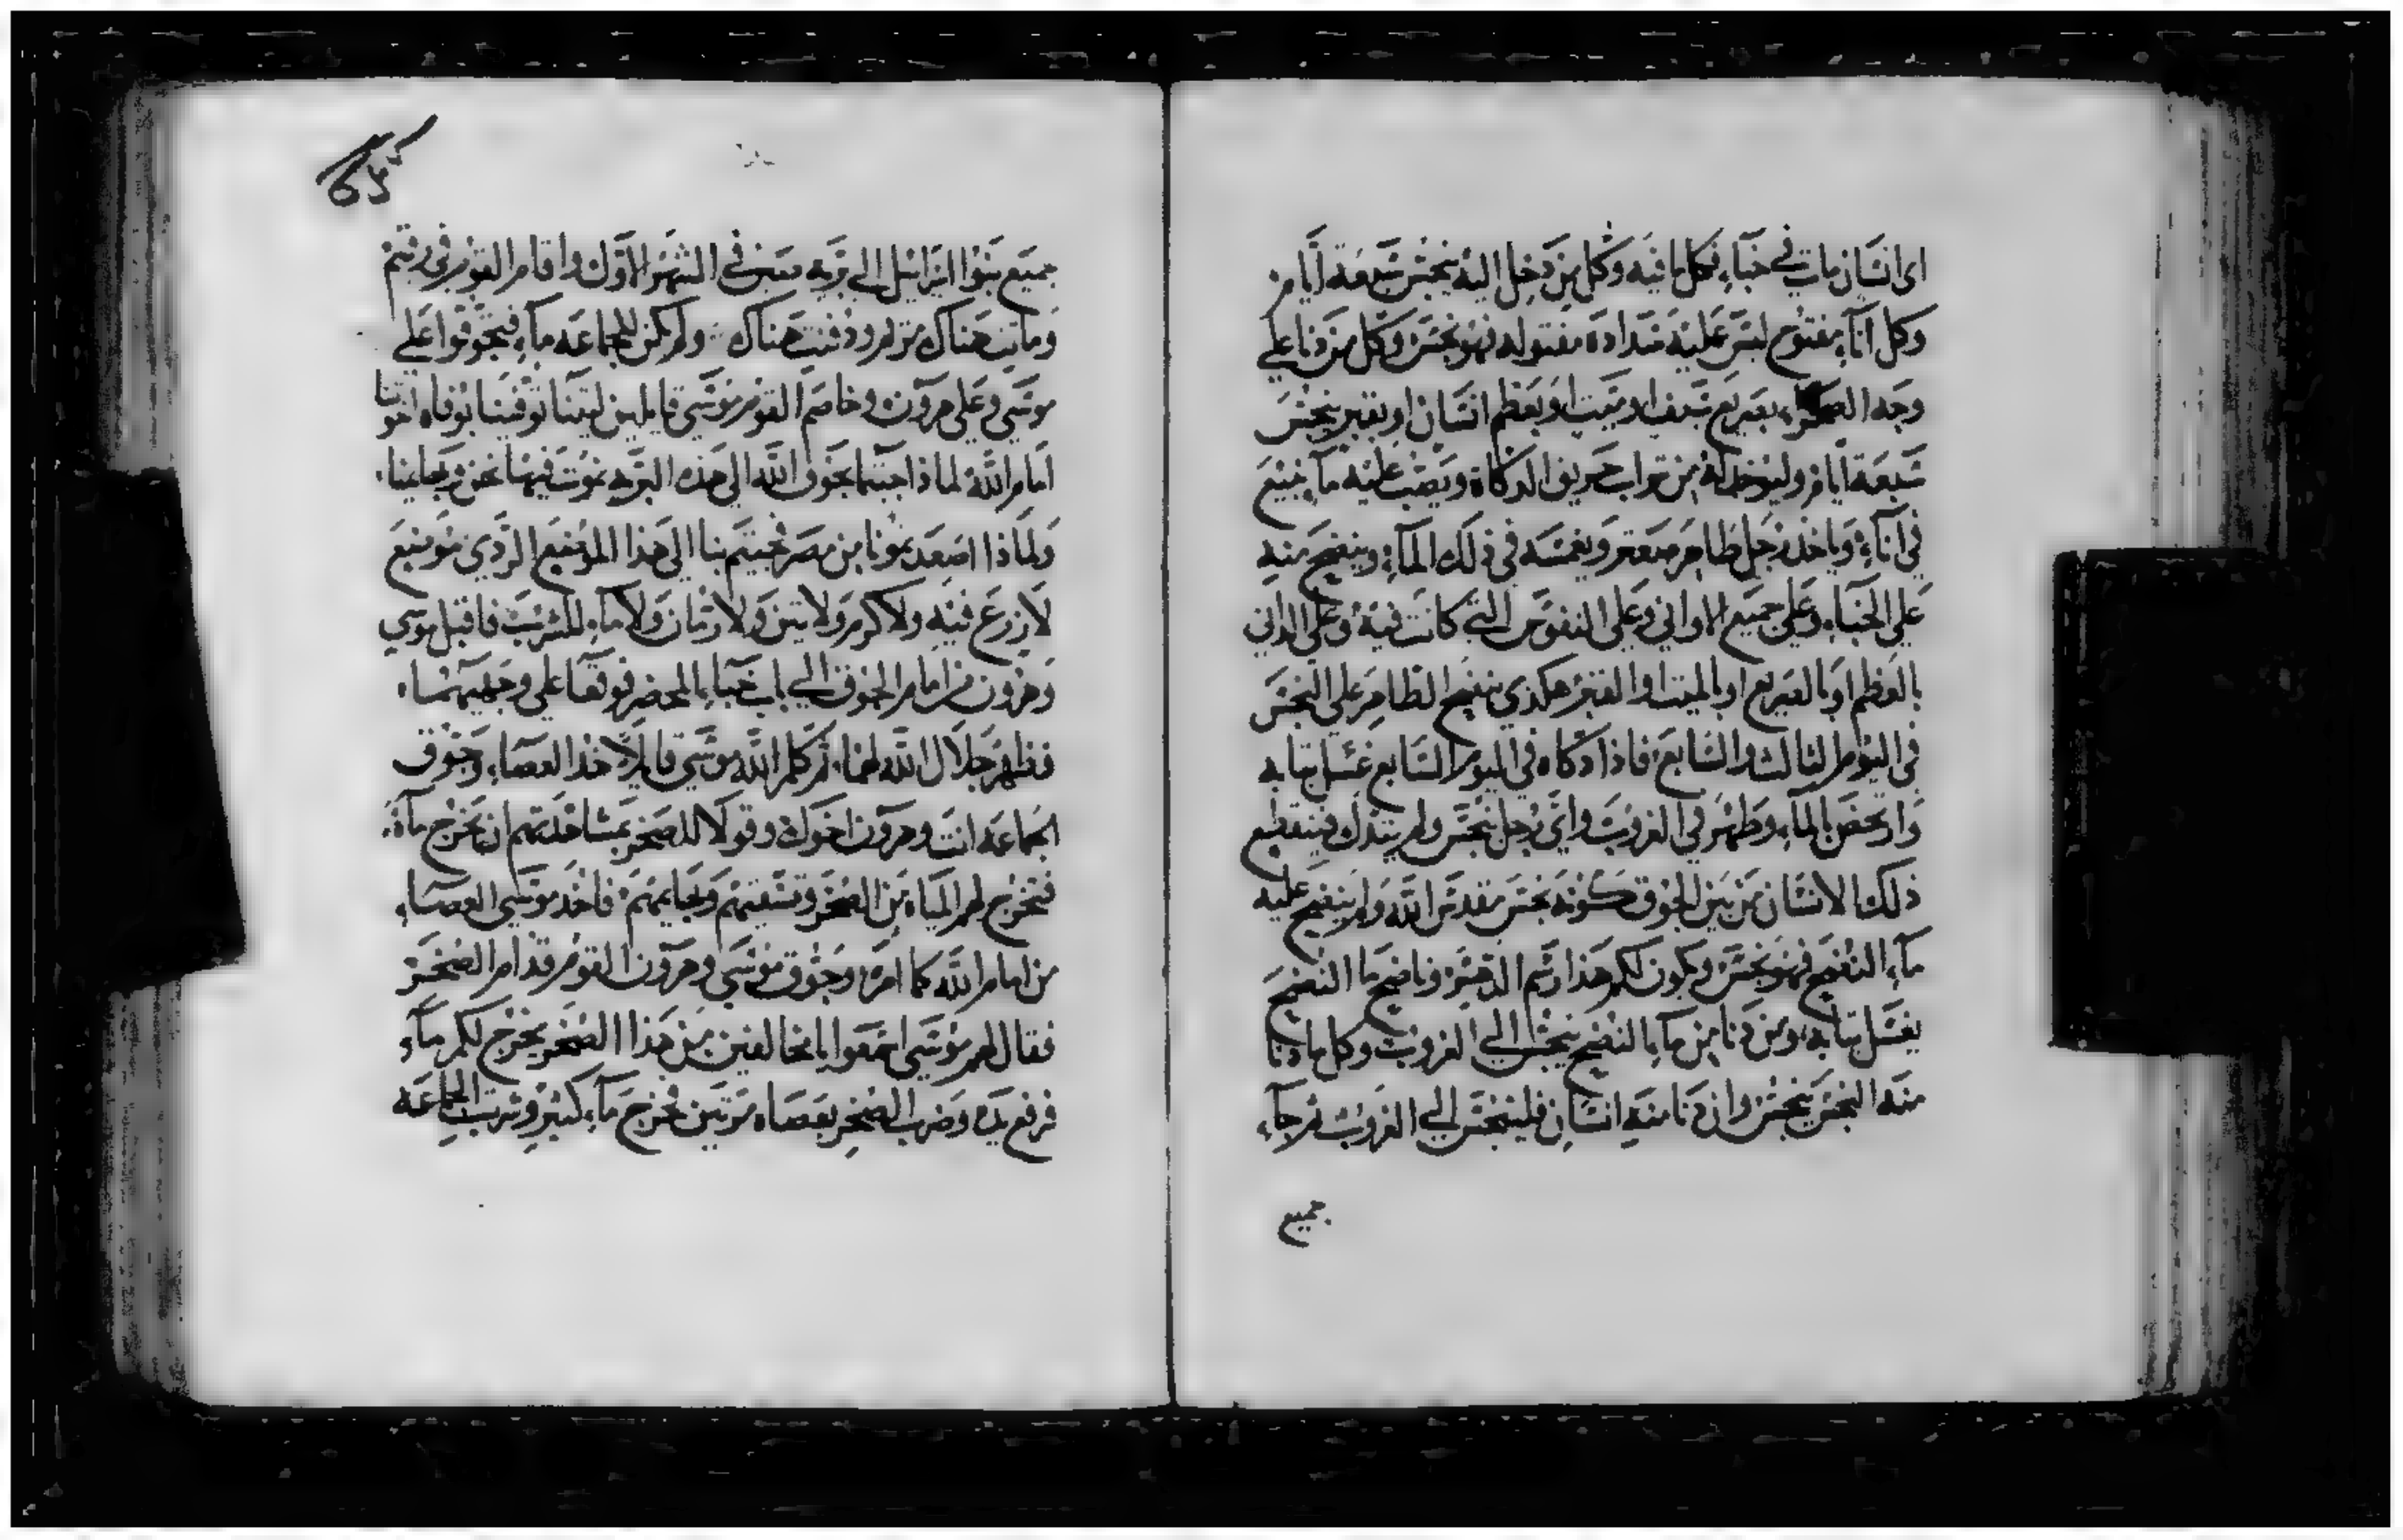 اى انسان مات في خباء فكل ما فيه وكل من دخل اليه ينجس سبعة ايام
وكل اناء مفتوح ليس عليه سدادة مفتوله فهو نجس وكل من دنا على
وجه الصحراء بصريع سيف او ميت او بعظم انسان او بقبر ينجس
سبعة ايام وليوخذ له من تراب حريق الدكاة ويصب عليه ماء ينبع
في اناء وياخذ رجل طاهر صعتر ويغمسه في ذلك الماء وينضح منه
على الخباء وعلى جميع الاواني وعلى النفوس التي كانت فيه وعلى الداني
بالعظم او بالصريع او بالميت او القبر هكذى ينضح الطاهر على النجس
في اليوم الثالث والسابع فاذا دكاه في اليوم السابع غسل ثيابه
وارتحض بالماء وطهر في الغروب واى رجل نجس ولم يتدك فينقطع
ذلك الانسان من بين الجوق كونه نجس مقدس الله ولم ينضح عليه
ماء النضح فهو نجس ويكون لكم هذا رسم الدهر وناضح ما النضح
يغسل ثيابه ومن دنا من ماء النضح ينجس الى الغروب وكل ما دنا
منه النجس ينجس وان دنا منه انسان فلينجس الى الغروب ثم جاء
جميع
جميع بنوا اسرائيل الى بريه صين في الشهر الاول واقام القوم في رقيم
وماتت هناك مريم ودفنت هناك ولم يكن للجماعه ماء فتجوقوا على
موسى وعلى هرون وخاصم القوم موسى قايلين ليتنا توفينا بوفاه اخوتنا
امام الله لماذا اجبتما بجوق الله الى هذه البريه نموت فيها نحن وبهايمنا
ولماذا اصعدتمونا من مصر فجيتم بنا الى هذا الموضع الردي موضع
لا زرع فيه ولا كرم ولا تين ولا رمان ولا ماء للشرب فاقبل موسى
وهرون من امام الجوق الى باب خباء المحضر فوقعا على وجهيهما
فظهر جلال الله لهما ثم كلم الله موسى قايلا خذ العصاء وجوق
الجماعه انت وهرون اخوك وقولا للصخر بمشاهدتهم ان يخرج ماة
فتخرج لهم المياه من الصخر وتسقيهم وبهايمهم فاخذ موسى العصاء
من امام الله كما امره وجوق موسى وهرون القوم قدام الصخر
فقال لهم موسى اسمعوا يا مخالفين من هذا الصخر يخرج لكم ماء
فرفع يده وضرب الصخر بعصاه مرتين فخرج ماء كثير وشربت الجماعه